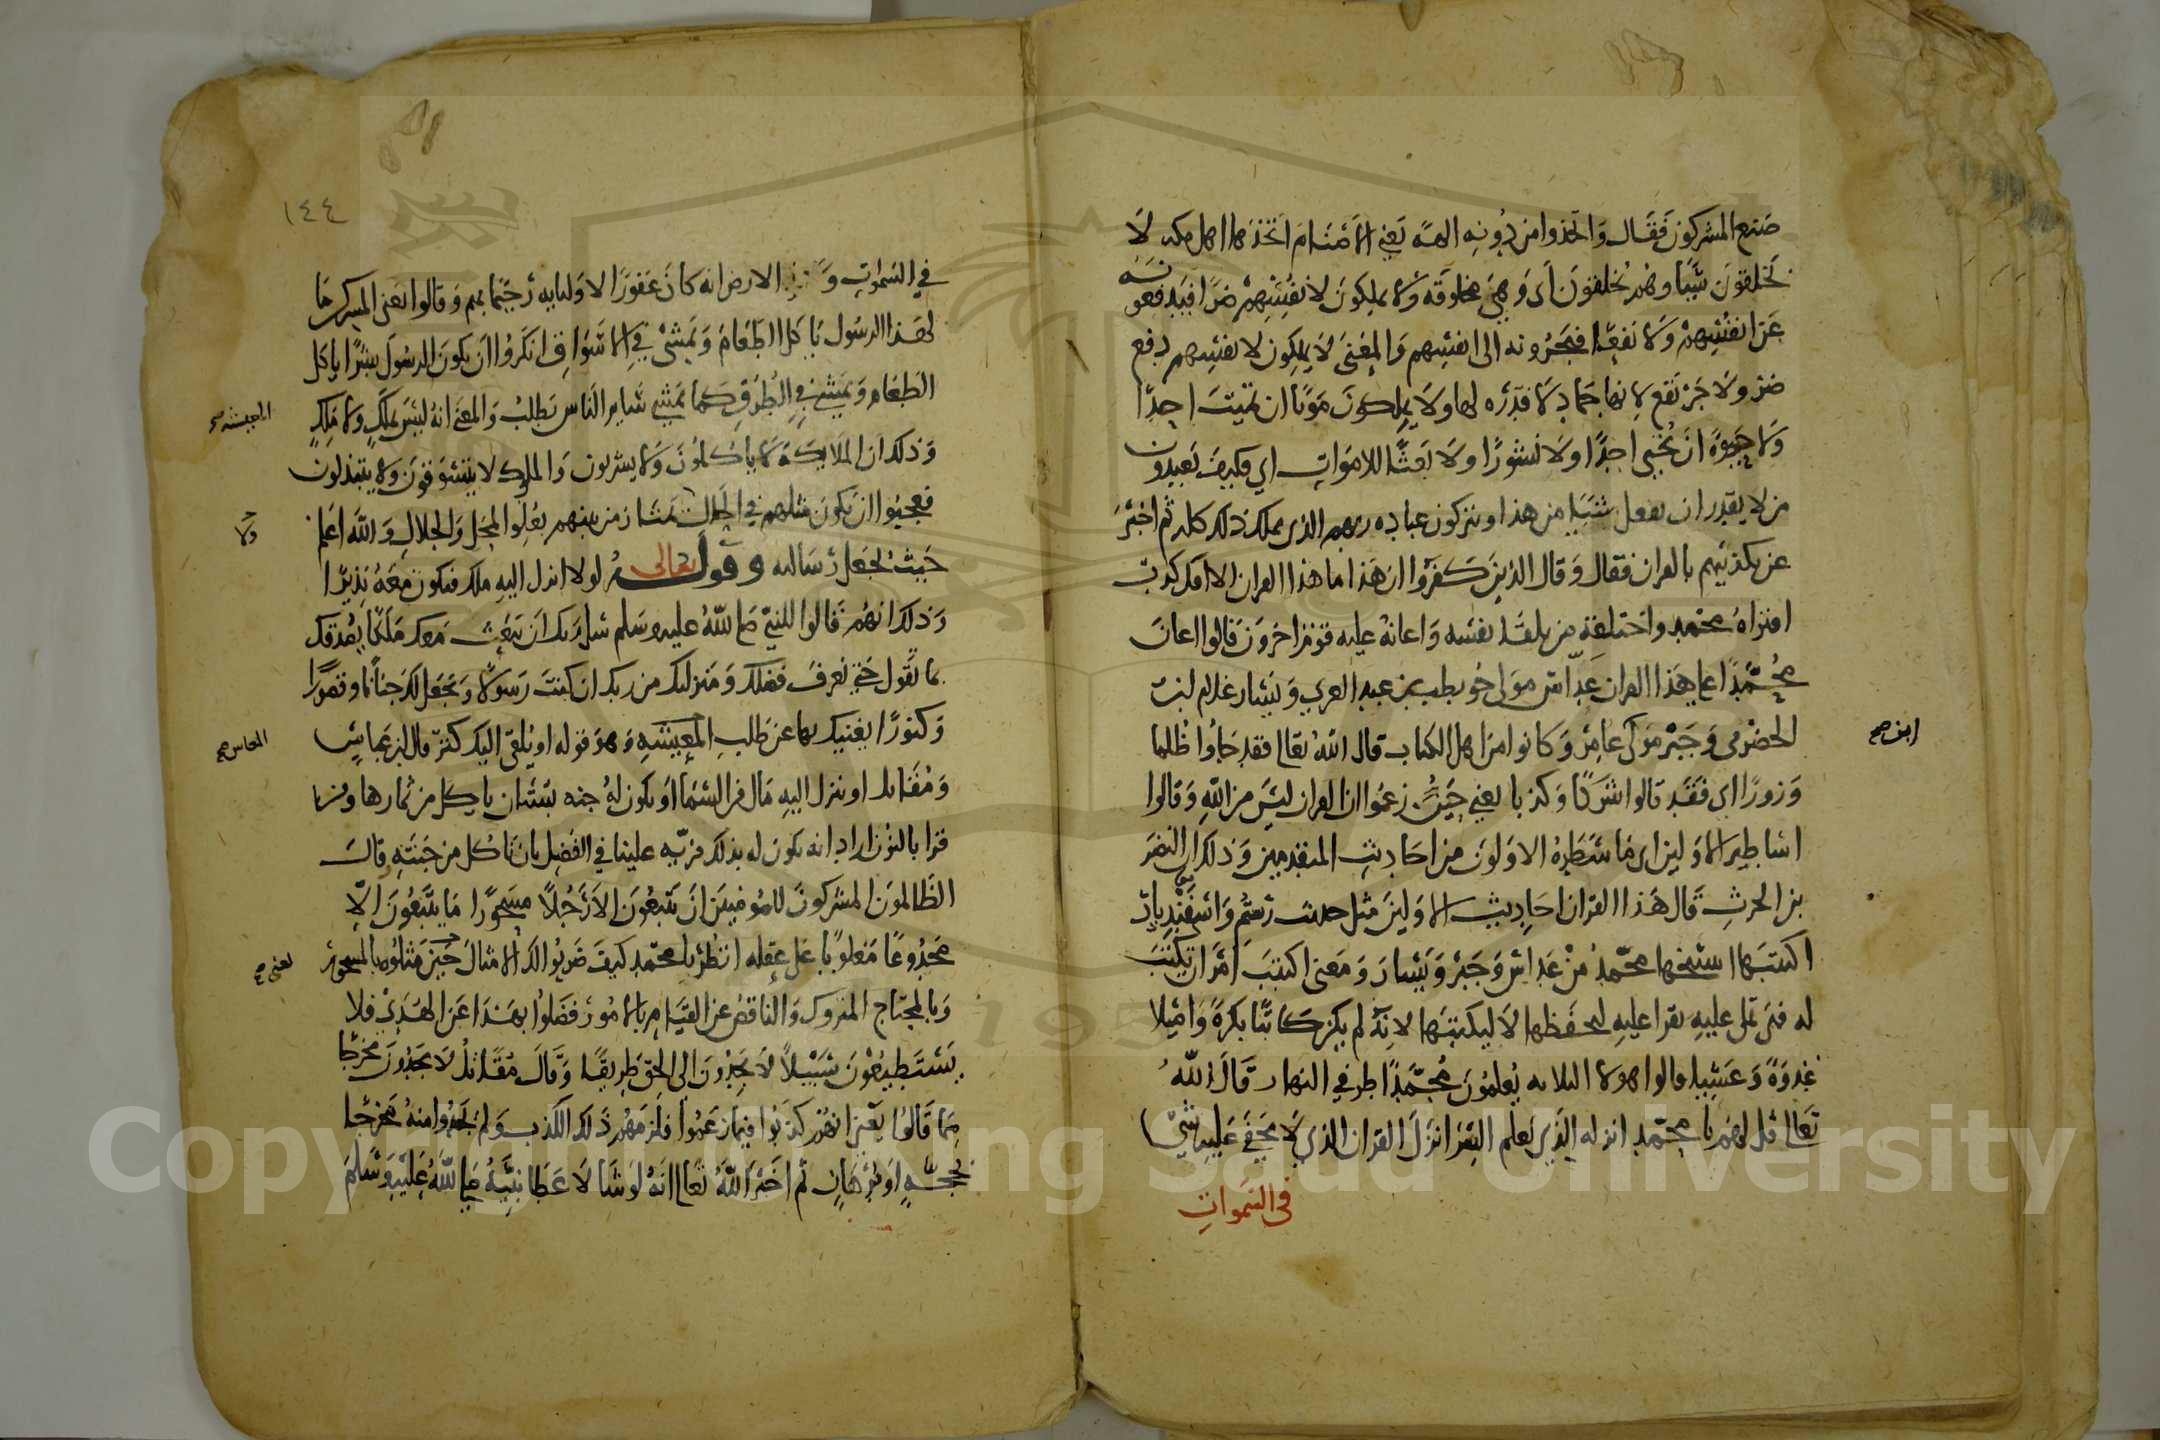 صنع المشركون فقال واتخذوا من دونه الهة يعني الاصنام اتخذها اهل مكة لا
يخلقون شيئا وهم يخلقون اي وهي مخلوقة ولا يملكون لانفسهم ضرا فيدفعونه
عن انفسهم ولا نفعا فيجرونه الى انفسهم والمعنى لا يملكون لانفسهم دفع
ضر ولا جر نفع لانها جماد لا قدرة لها ولا يملكون موتا ان تميت احدا
ولا حيوة ان تحيي احدا ولا نشورا ولا بعثا للاموات اي فكيف تعبدون
من لا يقدر ان يفعل شيئا من هذا وتتركون عبادة ربهم الذي يملك ذلك كله ثم اخبر
عن تكذيبهم بالقران فقال وقال الذين كفروا ان هذا ما هذا القران الا افك كذب
افتراه محمد واختلقه من تلقا نفسه واعانه عليه قوم اخرون قالوا اعان
محمدا على هذا القران عداس مولى حويطب بن عبد العزى ويسار غلام
الحضرمي وجبر مولى عامر وكانوا من اهل الكتاب قال الله تعالى فقد جاؤا ظلما
ابن صح
وزورا اي فقد قالوا شركا وكذبا يعني حين زعموا ان القران ليس من الله وقالوا
اساطير الاولين اي ما سطره الاولون من احاديث المتقدمين وذلك ان النضر
بن الحرث قال هذا القران احاديث الاولين مثل حديث رستم واسفنديار
اكتتبها استنسخها محمد من عداس وجبر ويسار ومعنى اكتتب امر ان تكتب
له فهي تملى عليه تقرا عليه ليحفظها لا ليكتبها لانه لم يكن كاتبا بكرة واصيلا
غدوة وعشيا قالوا هولا الثلاثة يعلمون محمدا طرفي النهار قال الله
تعالى قل لهم يا محمد انزله الذي يعلم السر انزل القران الذي لا يخفى عليه شي
في السموات
١٤٤
في السموات و الارض انه كان غفورا لاوليايه رحيما بهم وقالوا يعني المشركين ما
لهذا الرسول ياكل الطعام ويمشي في الاسواق انكروا ان يكون الرسول بشرا ياكل
الطعام ويمشي في الطرق كما يمشي ساير الناس يطلب والمعنى انه ليس بملك ولا ملك
المعيشة صح
وذلك ان الملايكة لا ياكلون ولا يشربون والملوك لا يتسوقون ولا يتبذلون
فعجبوا ان يكون مثلهم في الحال يمتاز من بينهم بعلو المحل والجلال والله اعلم
ولا
حيث يجعل رسالته وقوله تعالى لولا انزل اليه ملك فيكون معه نذيرا
وذلك انهم قالوا للنبي صلى الله عليه وسلم سل ربك ان يبعث معك ملكا يصدقك
بما تقول حتى نعرف فضلك ومنزلتك من ربك ان كنت رسولا ويجعل لك جنانا وقصورا
وكنوزا يغنيك بها عن طلب المعيشة وهو قوله او يلقى اليك كنز قال ابن عباس
ومقاتل او ينزل اليه مال من السما او يكون له جنة بستان ياكل من ثمارها ومن
قرا بالنون اراد انه يكون له بذلك مزية علينا في الفضل بان ناكل من جنته وقال
الظالمون المشركون للمومنين ان تتبعون الا رجلا مسحورا ما تتبعون الا
مخدوعا مغلوبا على عقله انظر يا محمد كيف ضربوا لك الامثال حين مثلوك بالمسحور
يعني صح
وبالمحتاج المتروك والناقص عن القيام بالامور فضلوا بهذا عن الهدى فلا
يستطيعون سبيلا لا يجدون الى الحق طريقا وقال مقاتل لا يجدون مخرجا
مما قالوا يعني انهم كذبوا فيما زعموا فلزمهم ذلك الكذب ولم يجدوا منه مخرجا
بحجة او برهان ثم اخبر الله تعالى انه لو شا لاعطا نبيه صلى الله عليه وسلم
Copyright © King Saud University